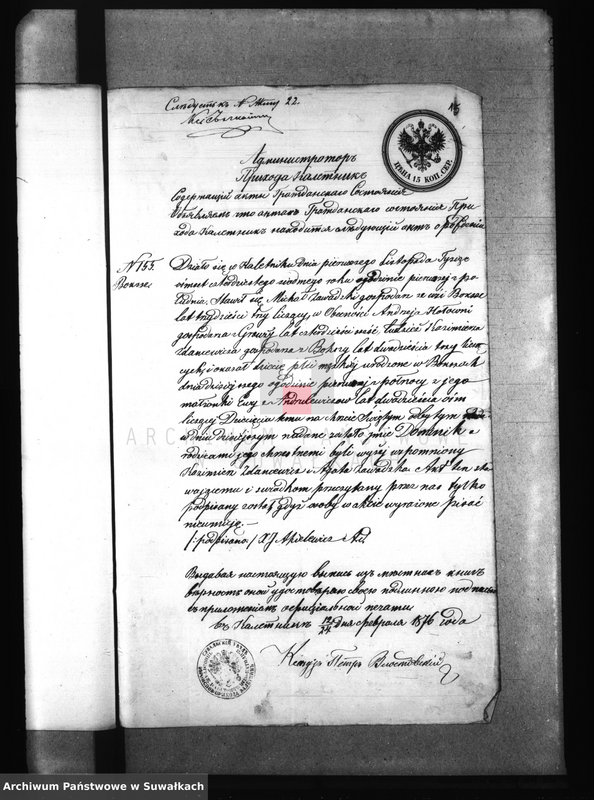 15
Слѣдуетъ къ № 22.
ЦѢНА 15 КОП. СЕР.
Администраторъ
Прихода Калетникъ
Содержащій акты Гражданскаго Состоянія
Объявляетъ что актахъ Гражданскаго состоянія При
хода Калетникъ находится слѣдующій актъ о рожденіи
N 155.
Boksze
Działo się w Kaletniku dnia pierwszego Listopada Tysiąc
ośmset siódmego roku o godzinie pierwszej z po
łudnia, Stawił się Michał Zawadzki gospodarz ze wsi Boksze
lat trzydzieści trzy liczący, w Obecności Andrzeja
gospodarza z lat czterdzieści sześć tudzież Kazimierza
Zdancewicza gospodarza z lat dwadzieścia trzy licz
ących i okazał dziecię płci męskiej urodzone w Bokszach
dnia dzisiejszego o godzinie pierwszej z północy z jego
małżonki Ewy z Andrulewiczów lat dwadzieścia ośm
liczącej Dziecięciu temu na Chrzcie Świętym odbytym
w dniu dzisiejszym nadane zostało imię Dominik a
rodzicami jego chrzestnemi byli wyżej wspomniony
Kazimierz Zdancewicz i Agata Akt ten sta
wającemu i świadkom przeczytany przez nas tylko
podpisany został gdyż osoby w akcie wyrażone pisać
nieumieją. —
/:podpisano:/ X J
Выдавая настоящую выпись изъ мѣстныхъ книгъ
вѣрность оной удостовѣряю своею подлинною подписью
съ приложеніемъ оффиціальной печати
въ Калетникъ 12/24 дня Февраля 1876 года
Ксендзъ Петръ
ARCHIWUM
Archiwum Państwowe w Suwałkach